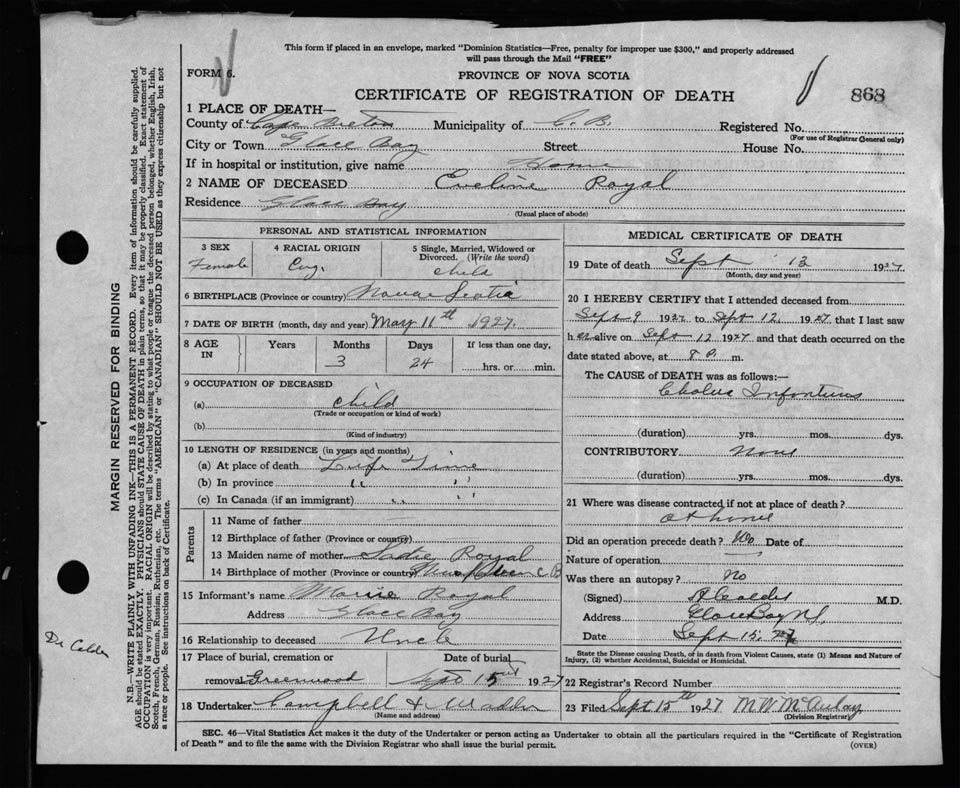 This form if placed in an envelope, marked "Dominion Statistics—Free, penalty for improper use $300," and properly addressed
will pass through the Mail "FREE"
FORM 6.
PROVINCE OF NOVA SCOTIA
CERTIFICATE OF REGISTRATION OF DEATH
868
1 PLACE OF DEATH—
County of Cape Breton Municipality of C. B. Registered No.
(For use of Registrar General only)
City or Town Glace Bay Street House No.
If in hospital or institution, give name Home
2 NAME OF DECEASED Eveline Royal
Residence Glace Bay
(Usual place of abode)
PERSONAL AND STATISTICAL INFORMATION
3 SEX
Female
4 RACIAL ORIGIN
Eng.
5 Single, Married, Widowed or
Divorced. (Write the word)
child
6 BIRTHPLACE (Province or country) Nova Scotia
7 DATE OF BIRTH (month, day and year) May 11th 1927.
8 AGE
IN
Years
Months
3
Days
24
If less than one day,
hrs. or min.
9 OCCUPATION OF DECEASED
(a) child
(Trade or occupation or kind of work)
(b)
(Kind of industry)
10 LENGTH OF RESIDENCE (in years and months)
(a) At place of death Life Time
(b) In province " "
(c) In Canada (if an immigrant) " "
Parents
11 Name of father
12 Birthplace of father (Province or country)
13 Maiden name of mother Sadie Royal
14 Birthplace of mother (Province or country) C B
15 Informant's name Royal
Address Glace Bay
16 Relationship to deceased Uncle
17 Place of burial, cremation or
removal Greenwood
Date of burial
Sept 15th 1927
18 Undertaker Campbell &
(Name and address)
MEDICAL CERTIFICATE OF DEATH
19 Date of death Sept 13 1927
(Month, day and year)
20 I HEREBY CERTIFY that I attended deceased from
Sept 9 1927 to Sept 12, 1927 that I last saw
her alive on Sept 12 1927 and that death occurred on the
date stated above, at 8 P. m.
The CAUSE of DEATH was as follows:—
Cholera Infantum
(duration) yrs. mos. dys.
CONTRIBUTORY None
(duration) yrs. mos. dys.
21 Where was disease contracted if not at place of death?
at home
Did an operation precede death? No Date of
Nature of operation
Was there an autopsy? no
(Signed) A Calder M.D.
Address Glace Bay N.S.
Date Sept 15. 27
State the Disease causing Death, or in death from Violent Causes, state (1) Means and Nature of
Injury, (2) whether Accidental, Suicidal or Homicidal.
22 Registrar's Record Number
23 Filed Sept 15th 1927 M W McAulay
(Division Registrar)
SEC. 46—Vital Statistics Act makes it the duty of the Undertaker or person acting as Undertaker to obtain all the particulars required in the "Certificate of Registration
of Death" and to file the same with the Division Registrar who shall issue the burial permit.
(OVER)
MARGIN RESERVED FOR BINDING
N.B.—WRITE PLAINLY WITH UNFADING INK—THIS IS A PERMANENT RECORD. Every item of information should be carefully supplied.
AGE should be stated EXACTLY. PHYSICIANS should STATE CAUSE OF DEATH in plain terms, so that it may be properly classified. Exact statement of
OCCUPATION is very important. RACIAL ORIGIN will be described by stating to what people or tongue the deceased person belonged, whether English, Irish,
Scotch, French, German, Russian, Ruthenian, etc. The terms "AMERICAN" or "CANADIAN" SHOULD NOT BE USED as they express citizenship but not
a race or people. See instructions on back of Certificate.
Dr Calder